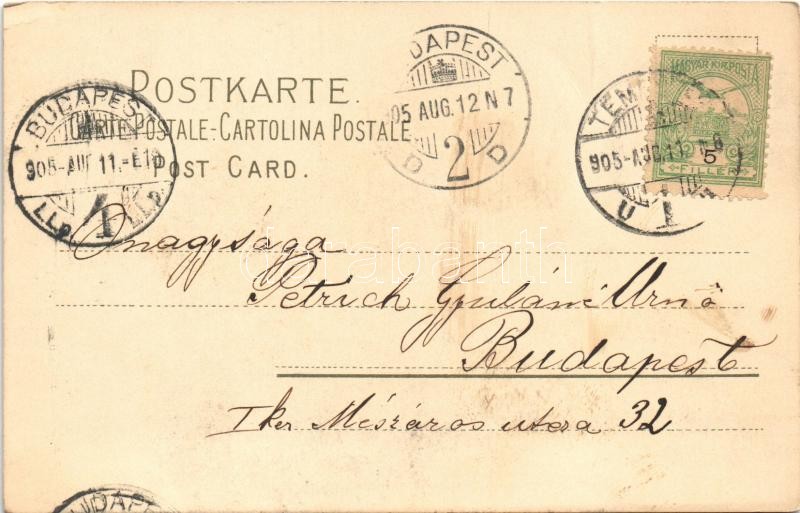 POSTKARTE.
CARTE POSTALE-CARTOLINA POSTALE
POST CARD.
BUDAPEST
905-AUG 11.-E10
LLp. 4 LLp.
BUDAPEST
905 AUG. 12 N 7
D 2 D
905-AUG. 11. N 8
U 1
MAGYAR KIR. POSTA
5
FILLÉR
Önagysága
Petrich Gyuláné Úrnő
Budapest
I ker Mészáros utcza 32
darabanth
BUDAPE